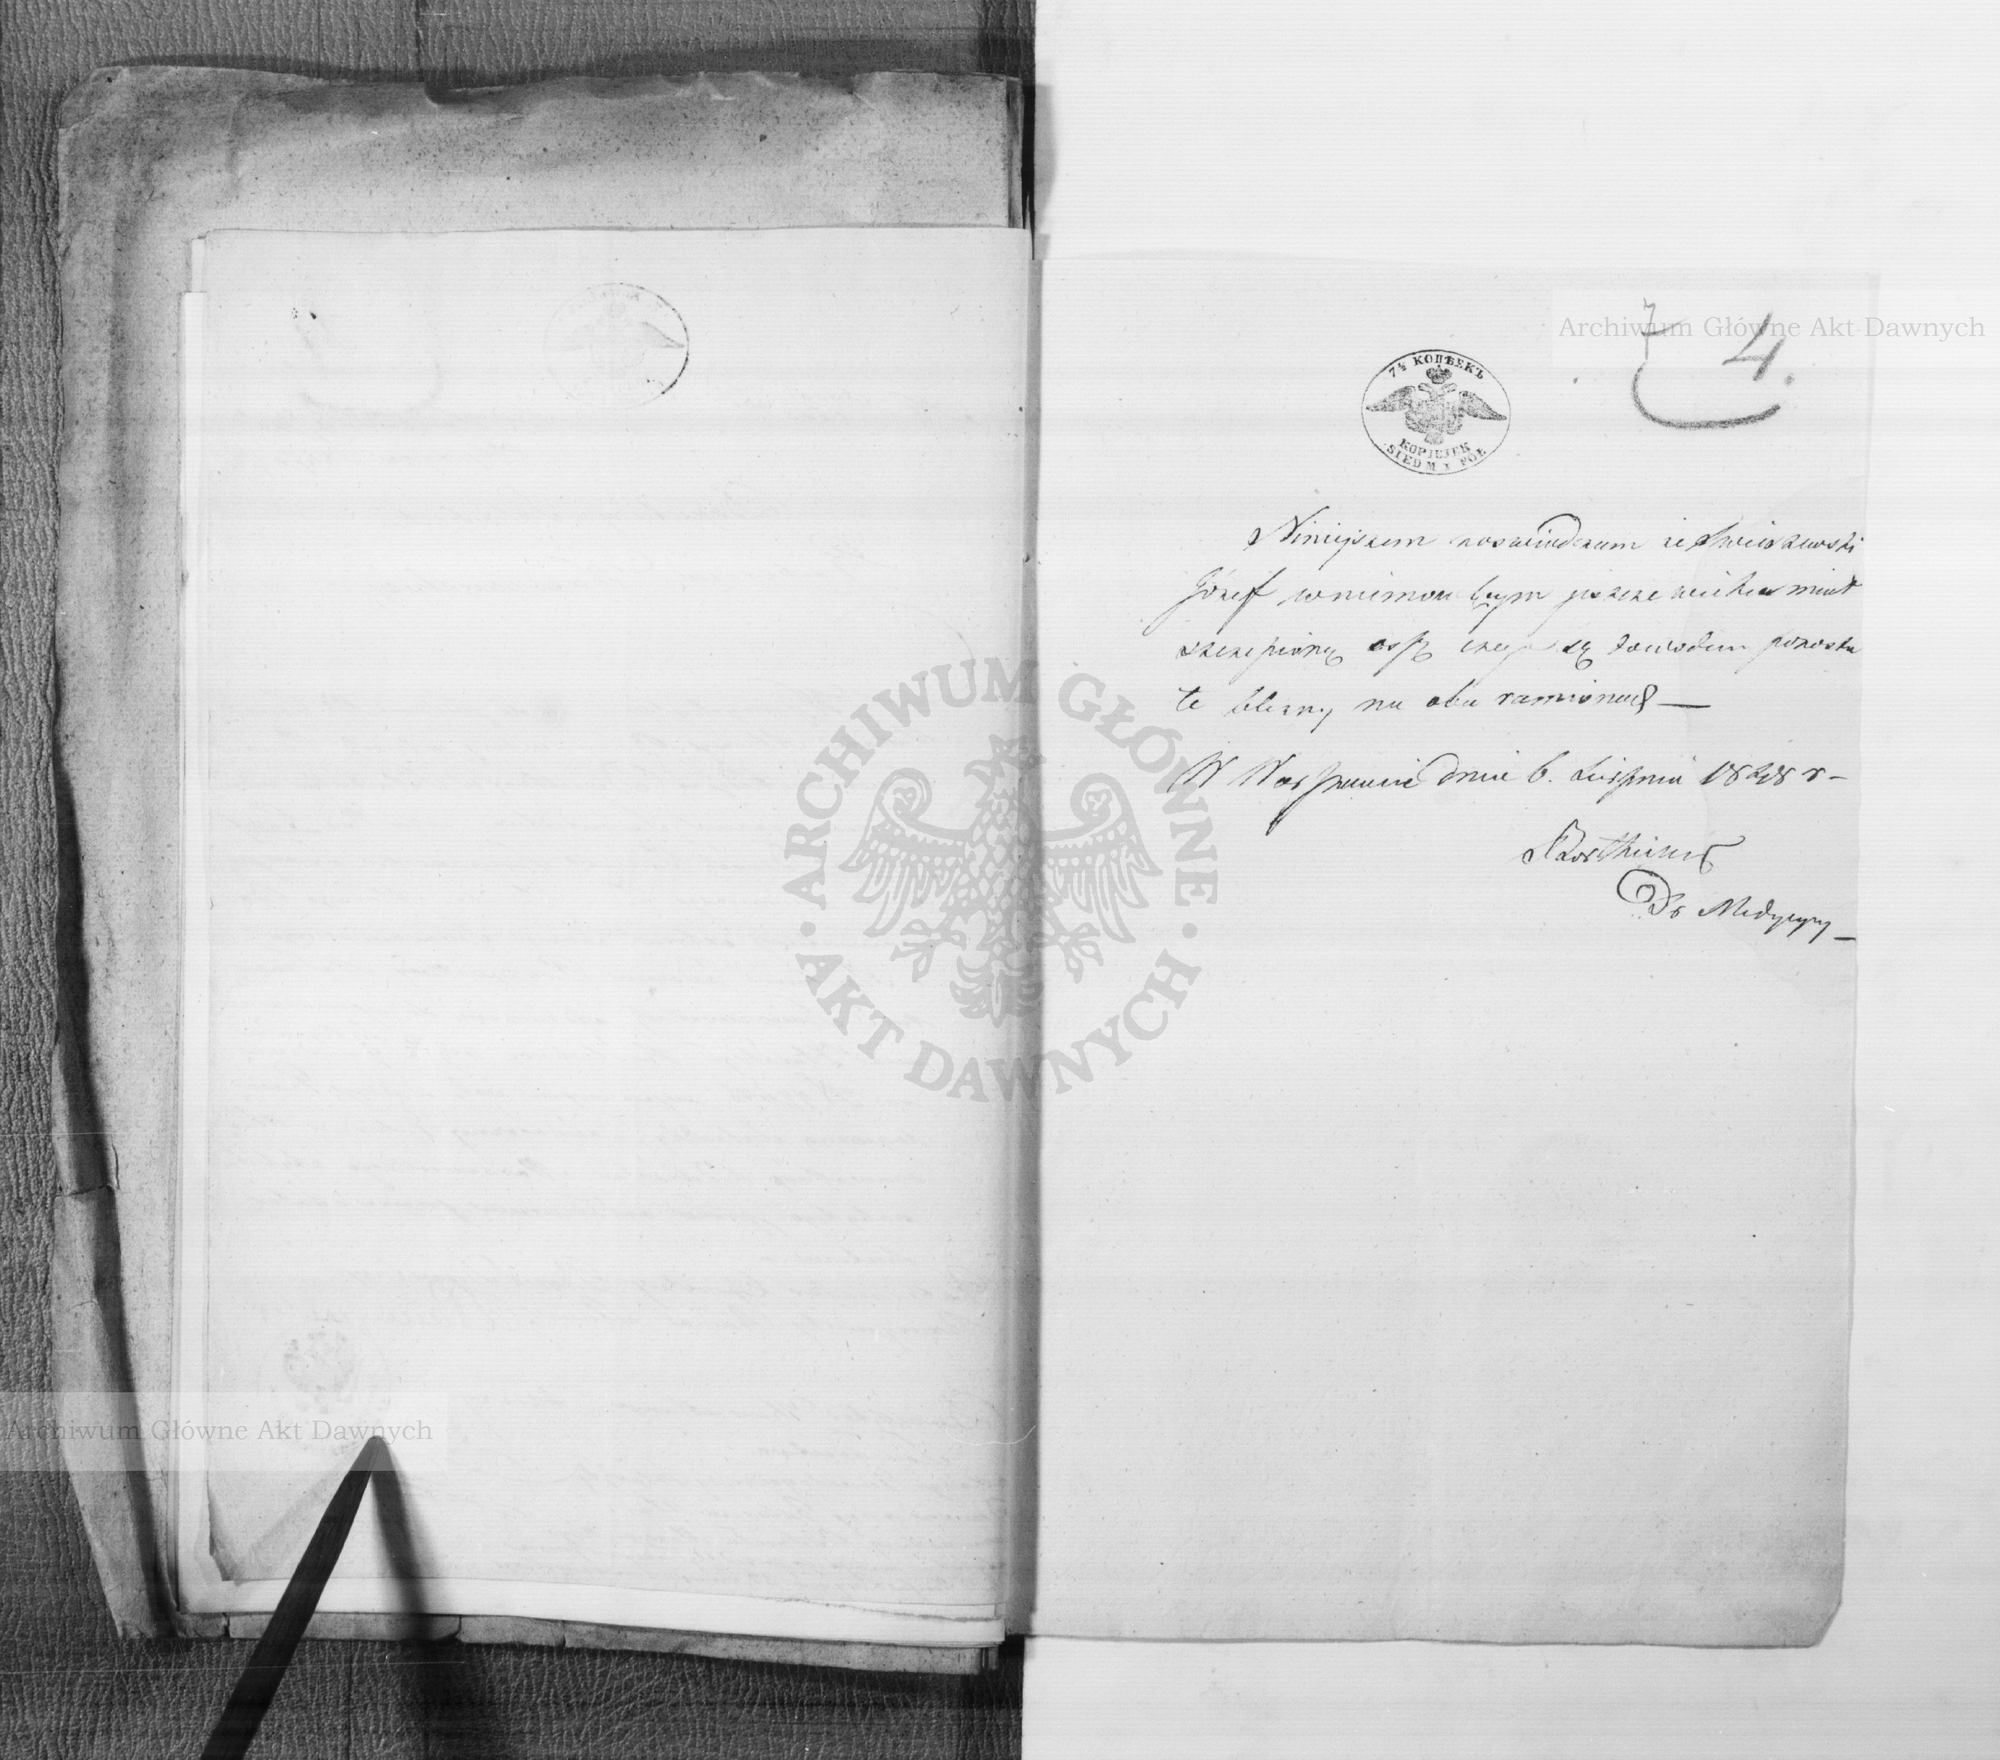 Archiwum Główne Akt Dawnych
7
4.
7½ КОПѢЕКЪ
KOPIEJEK
SIEDM Y PÓŁ
Ninieyszem zaświadczam że Świeszewski
Józef w niemowlęcym jeszcze wieku miał
szczepioną ospę czego są dowodem pozosta
te blizny na obu ramionach —
W Warszawie dnia 6. Sierpnia 1848 r –
Dr Medycyny —
ARCHIWUM GŁÓWNE
AKT DAWNYCH
Archiwum Główne Akt Dawnych